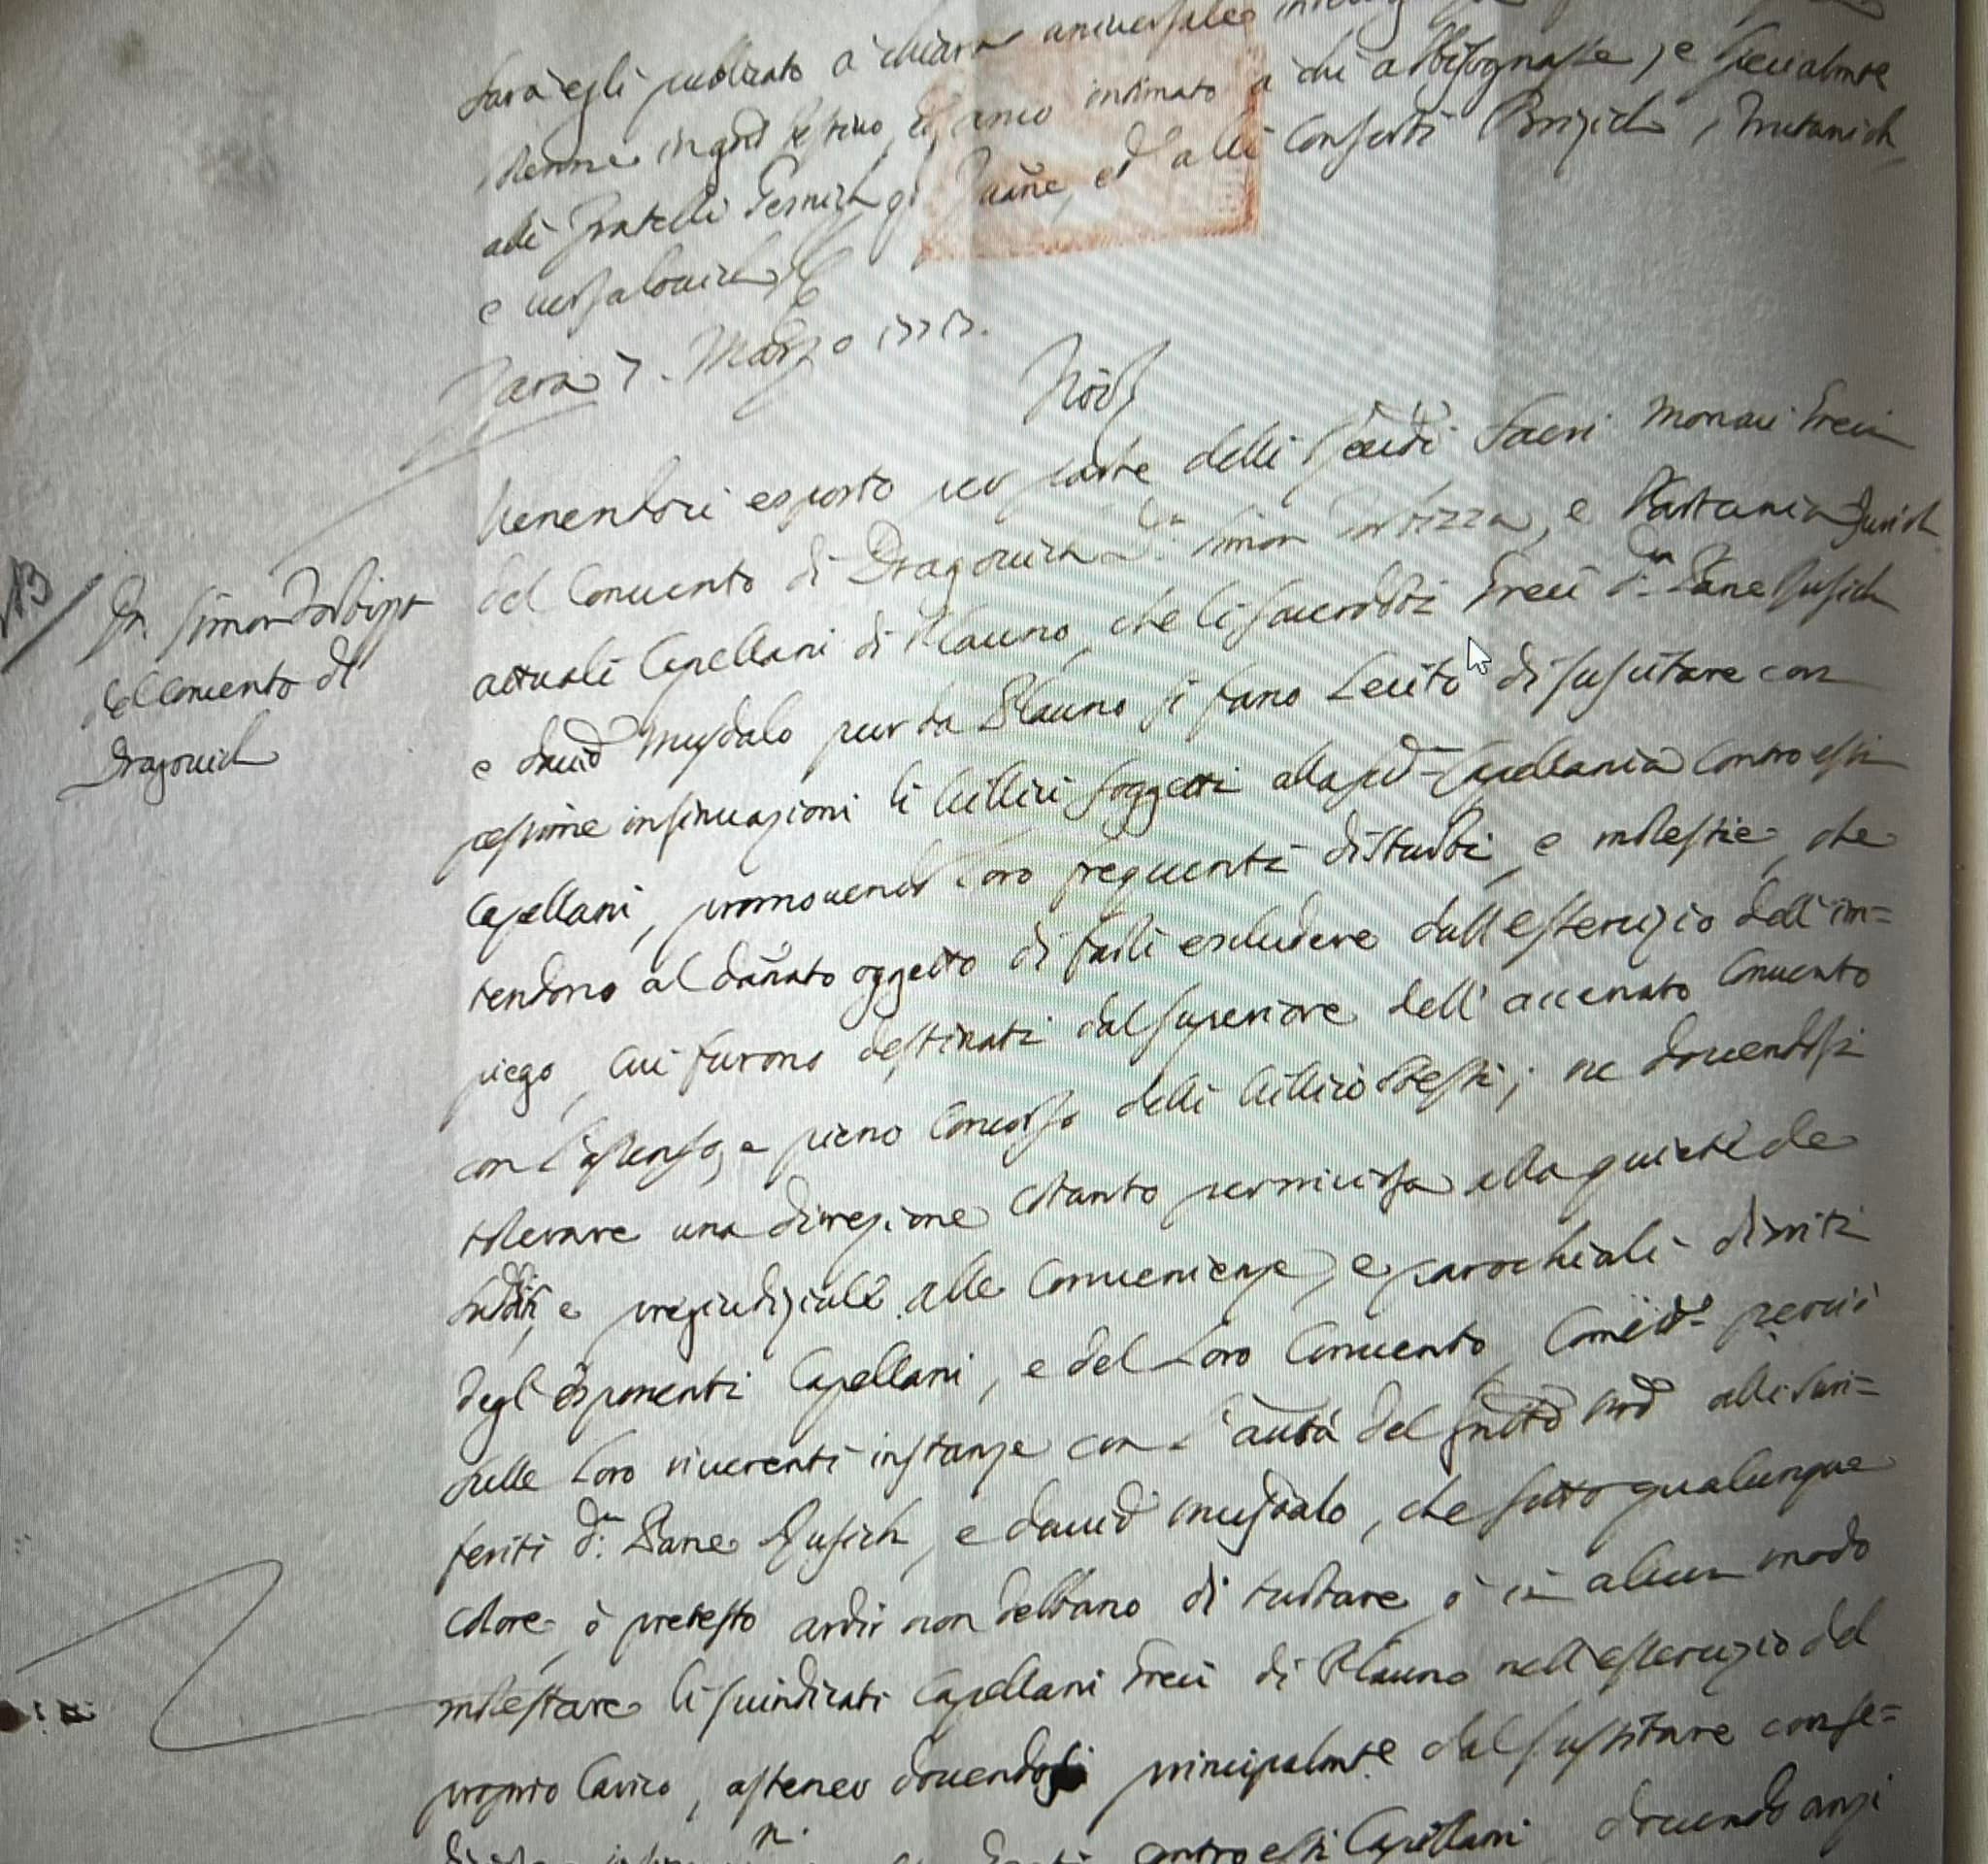 sarà egli publicato a chiara universale
venne in giorno festivo, ed anco intimato a chi abbisognasse, e specialmte
alli Fratelli Pernich qm Zuane, ed alli Consorti Brizich,
e
Zara 7. Marzo
Noi
Venendoci esposto per parte delli Sacri Monaci Greci
del Convento di Dragovich Dn Simon e Jusich
attuali Capellani di Plauno, che li sacerdoti Greci Dn Pane Jusich
e David Musdalo pur da Plauno si fano Lecito di suscitare con
pessime insinuazioni li Villici soggetti alla sud. Capellania contro essi
Capellani, promovendo Loro frequenti disturbi, e molestie, che
tendono al danato oggetto di farli escludere dall'essercizio dell'im=
piego, cui furono destinati dal superiore dell'accenato Convento
con l'assenso, e pieno concorso delli Villici stessi; ne dovendosi
tolerare una direzione cotanto perniciosa alla quiete de
sudditi, e pregiudiziale alle convenienze, e parochiali diritti
degl'esponenti Capellani, e del Loro Convento perciò
sulle Loro riverenti instanze con l'autà del alli suri=
feriti Dn Pane Jusich, e David Musdalo, che sotto qualunque
colore, ò pretesto ardir non debbano di turbare, ò in alcun modo
molestare li suindicati Capellani Greci di Plauno nell'essercizio del
proprio Carico, astener dovendosi principalmte dal suscitare conse=
contro essi Capellani dovendo anzi
Dn. Simon
del Convento di
Dragovich